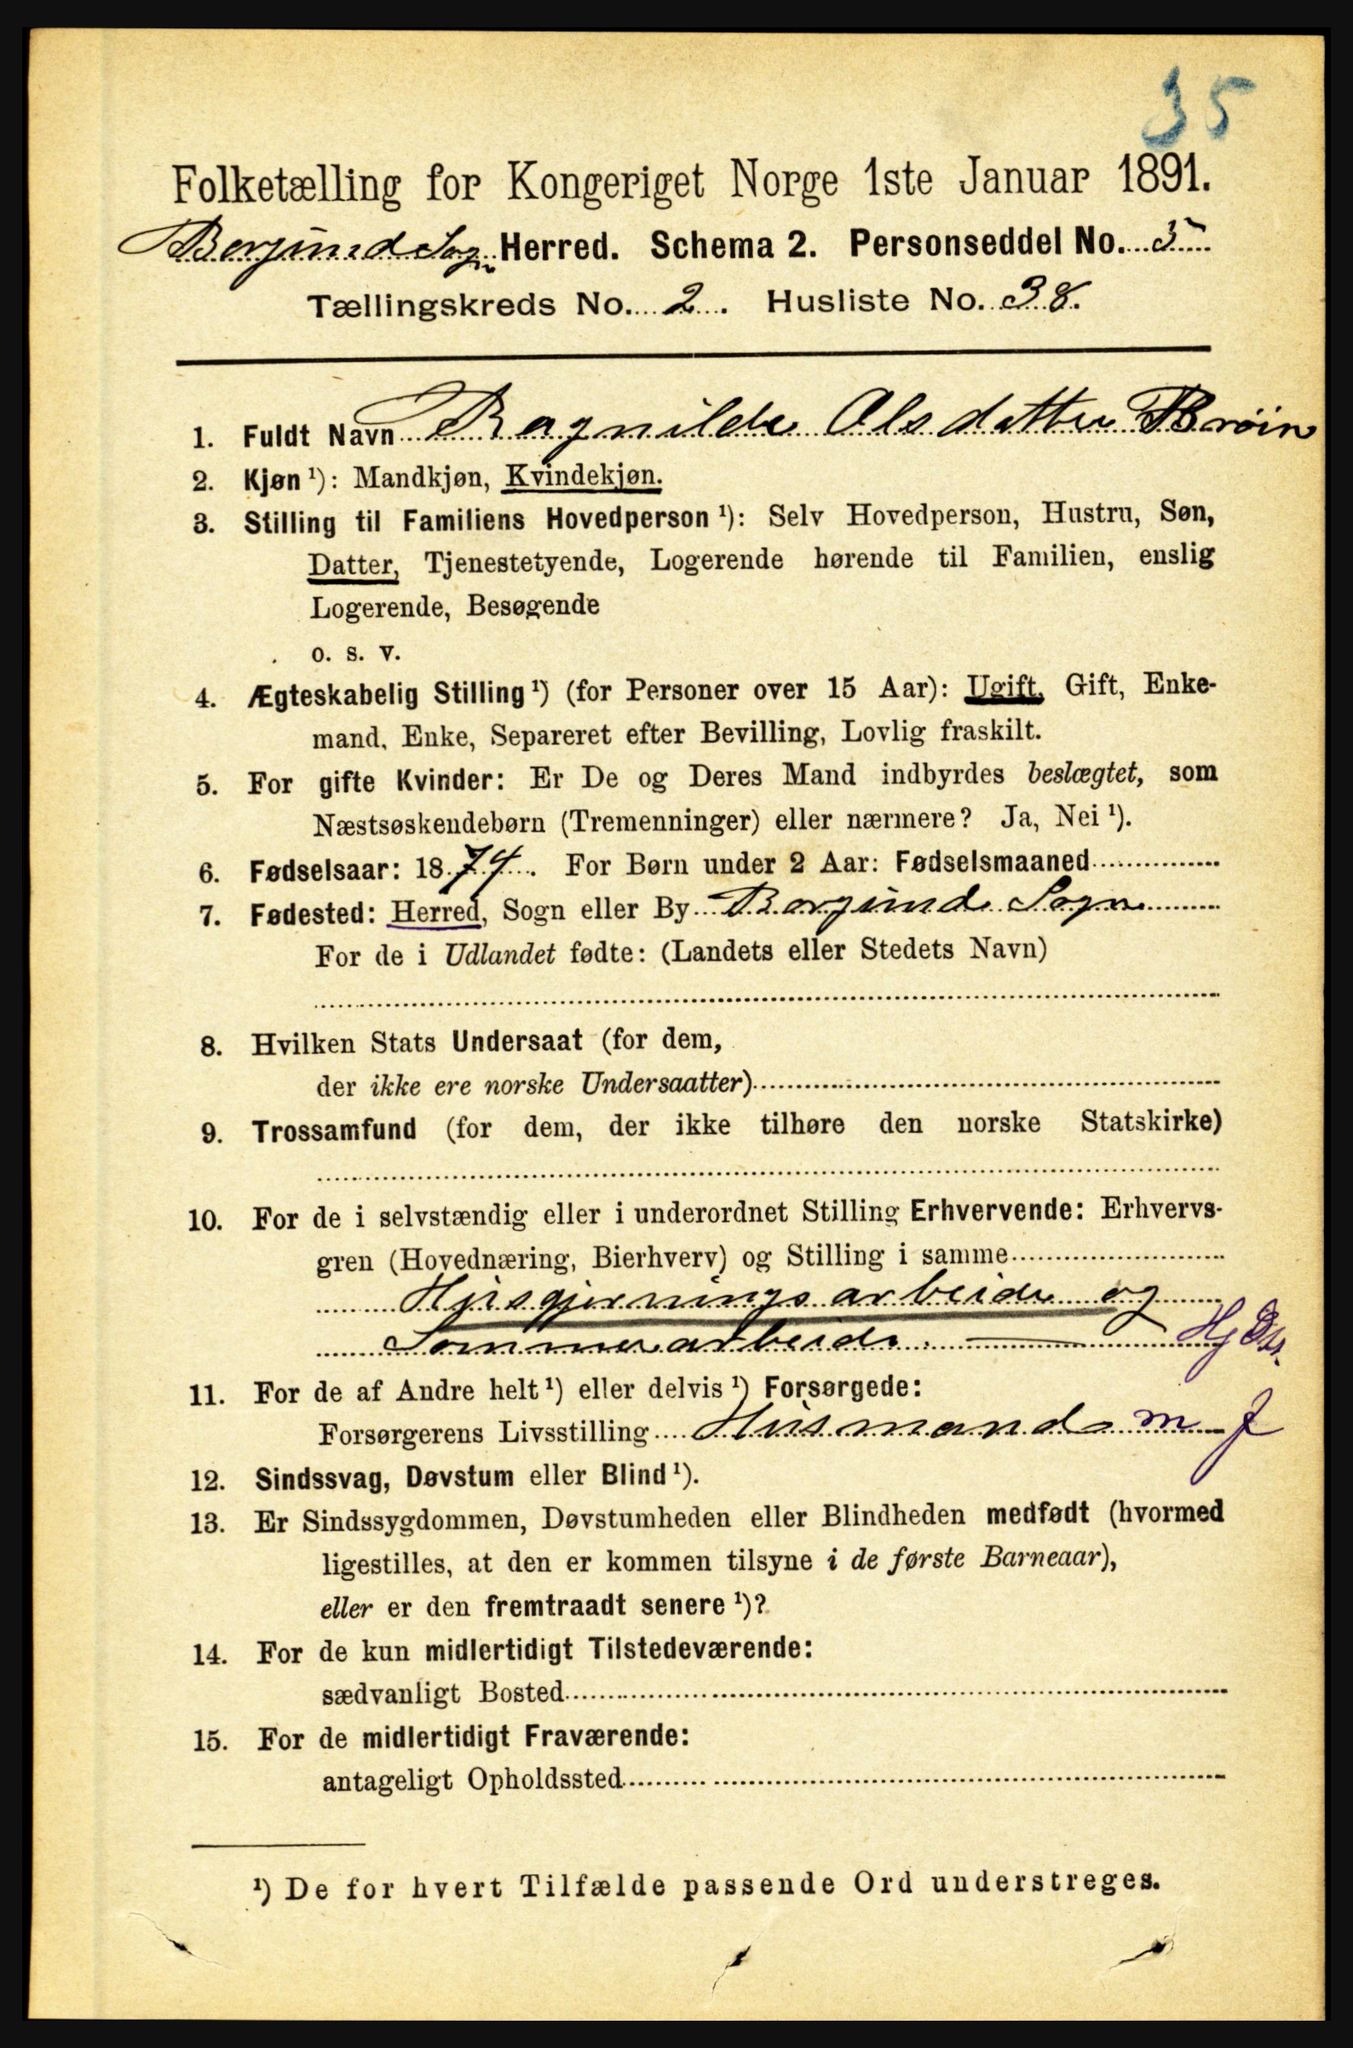 35
Folketælling for Kongeriget Norge 1ste Januar 1891.
Borgund Sogn Herred. Schema 2. Personseddel No. 3
Tællingskreds No. 2. Husliste No. 38.
1. Fuldt Navn Ragnilde Olsdatter Brøin
2. Kjøn ¹): Mandkjøn, Kvindekjøn.
3. Stilling til Familiens Hovedperson ¹): Selv Hovedperson, Hustru, Søn,
Datter, Tjenestetyende, Logerende hørende til Familien, enslig
Logerende, Besøgende
o. s. v.
4. Ægteskabelig Stilling ¹) (for Personer over 15 Aar): Ugift, Gift, Enke-
mand, Enke, Separeret efter Bevilling, Lovlig fraskilt.
5. For gifte Kvinder: Er De og Deres Mand indbyrdes beslægtet, som
Næstsøskendebørn (Tremenninger) eller nærmere? Ja, Nei ¹).
6. Fødselsaar: 1874. For Børn under 2 Aar: Fødselsmaaned
7. Fødested: Herred, Sogn eller By Borgund Sogn
For de i Udlandet fødte: (Landets eller Stedets Navn)
8. Hvilken Stats Undersaat (for dem,
der ikke ere norske Undersaatter)
9. Trossamfund (for dem, der ikke tilhøre den norske Statskirke)
10. For de i selvstændig eller i underordnet Stilling Erhvervende: Erhvervs-
gren (Hovednæring, Bierhverv) og Stilling i samme
Husgjerningsarbeide og
Sommerarbeide.
11. For de af Andre helt ¹) eller delvis ¹) Forsørgede:
Forsørgerens Livsstilling Husmand m J
12. Sindssvag, Døvstum eller Blind ¹).
13. Er Sindssygdommen, Døvstumheden eller Blindheden medfødt (hvormed
ligestilles, at den er kommen tilsyne i de første Barneaar),
eller er den fremtraadt senere ¹)?
14. For de kun midlertidigt Tilstedeværende:
sædvanligt Bosted
15. For de midlertidigt Fraværende:
antageligt Opholdssted
¹) De for hvert Tilfælde passende Ord understreges.